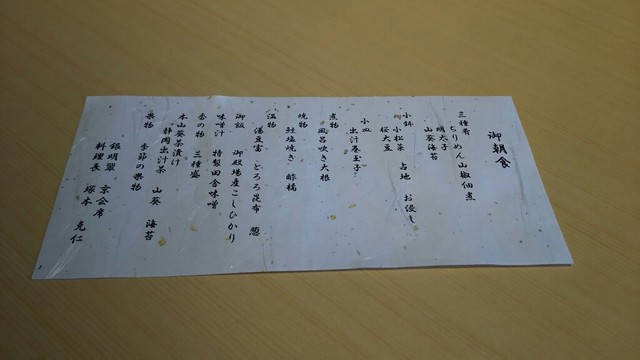 御朝食
三種肴
ちりめん山椒佃煮
明太子
山葵海苔
小鉢
小松菜 占地 お浸し
桜大豆
小皿
出汁巻玉子
煮物
風呂吹き大根
焼物
鮭塩焼き 酢橘
温物
湯豆富 とろろ昆布 葱
御飯
御殿場産こしひかり
味噌汁
特製田舎味噌
香の物
三種盛
本山葵茶漬け
静岡出汁茶 山葵 海苔
果物
季節の果物
銀明翠 京会席
料理長 塚本 克仁